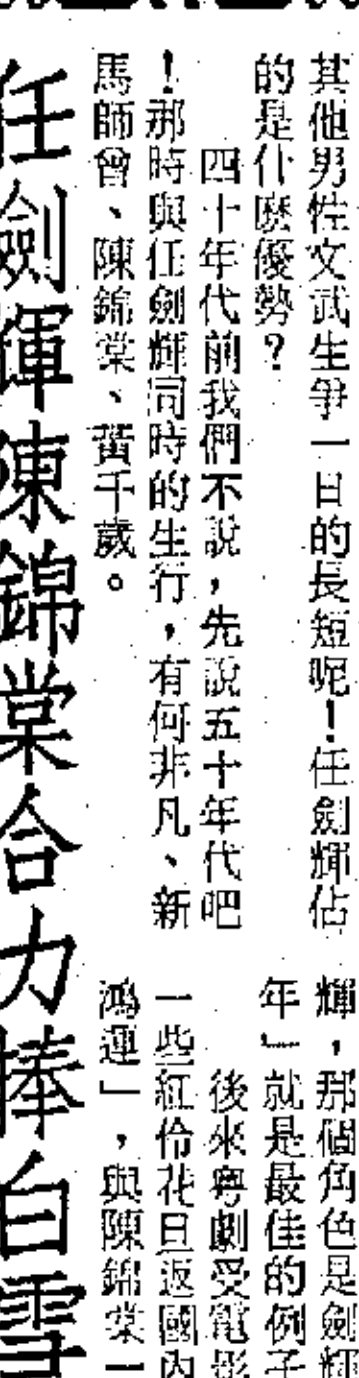 其他男性文武生爭一日的長短呢！任劍輝佔
的是什麽優勢？
四十年代前我們不說，先說五十年代吧
！那時與任劍輝同時的生行，有何非凡、新
馬師曾、陳錦棠、黃千歲。
輝，那個角色是劍輝
年」就是最佳的例子
後來粵劇受電影
一些紅伶花旦返國內
鴻運」，與陳錦棠一
任劍輝陳錦棠合力捧白雪